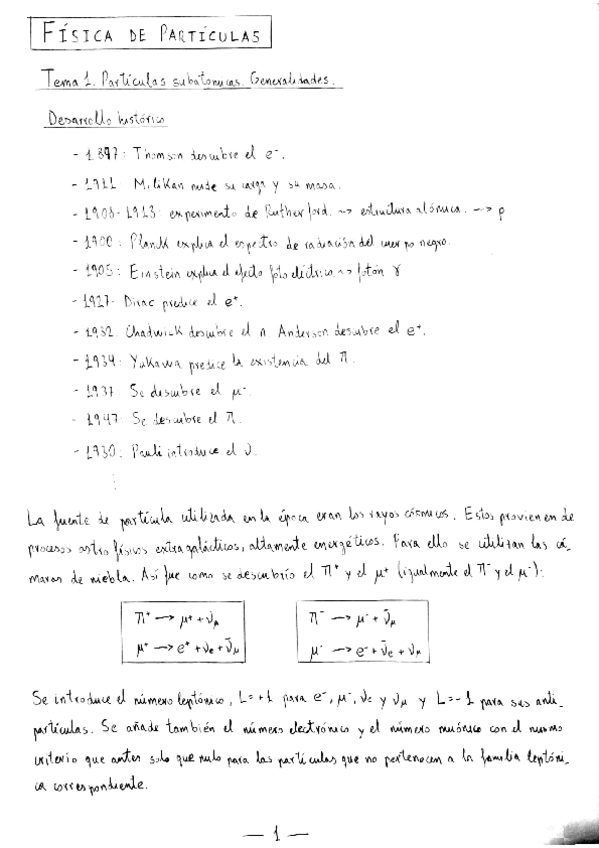 FÍSICA DE PARTÍCULAS
Tema 1. Partículas subatómicas. Generalidades.
Desarrollo histórico
- 1897: Thomson descubre el e⁻.
- 1911 Milikan mide su carga y su masa.
- 1908-1913: experimento de Rutherford. ⇝ estructura atómica. ⇢ p
- 1900: Planck explica el espectro de radiación del cuerpo negro.
- 1905: Einstein explica el efecto fotoeléctrico. ⇝ fotón γ
- 1927. Dirac predice el e⁺.
- 1932. Chadwick descubre el n. Anderson descubre el e⁺.
- 1934: Yukawa predice la existencia del π.
- 1937: Se descubre el μ⁻.
- 1947: Se descubre el π.
- 1930: Pauli introduce el ν.
⋮
La fuente de partícula utilizada en la época eran los rayos cósmicos. Estos provienen de
procesos astrofísicos extragalácticos, altamente energéticos. Para ello se utilizan las cá-
maras de niebla. Así fue como se descubrió el π⁺ y el μ⁺ (igualmente el π⁻ y el μ⁻):
π⁺ → μ⁺ + ν_μ
μ⁺ → e⁺ + ν_e + ν̄_μ
π⁻ → μ⁻ + ν̄_μ
μ⁻ → e⁻ + ν̄_e + ν_μ
Se introduce el número leptónico, L=+1 para e⁻, μ⁻, ν_e y ν_μ y L=-1 para sus anti-
partículas. Se añade también el número electrónico y el número muónico con el mismo
criterio que antes solo que nulo para las partículas que no pertenecen a la familia leptóni-
ca correspondiente.
— 1 —